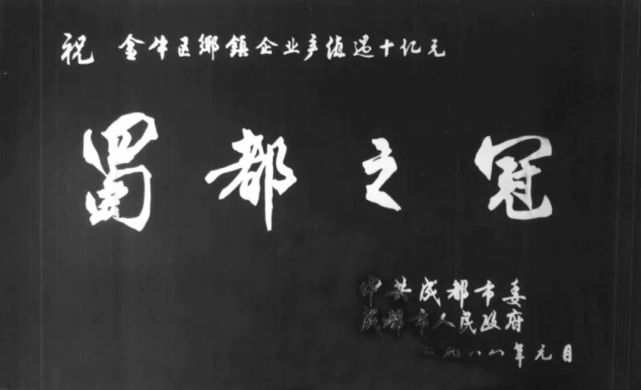 祝 金牛区乡鎮企业产值过十亿元
蜀都之冠
中共成都市委
成都市人民政府
一九八八年元月